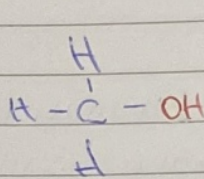 H
H - C - OH
H